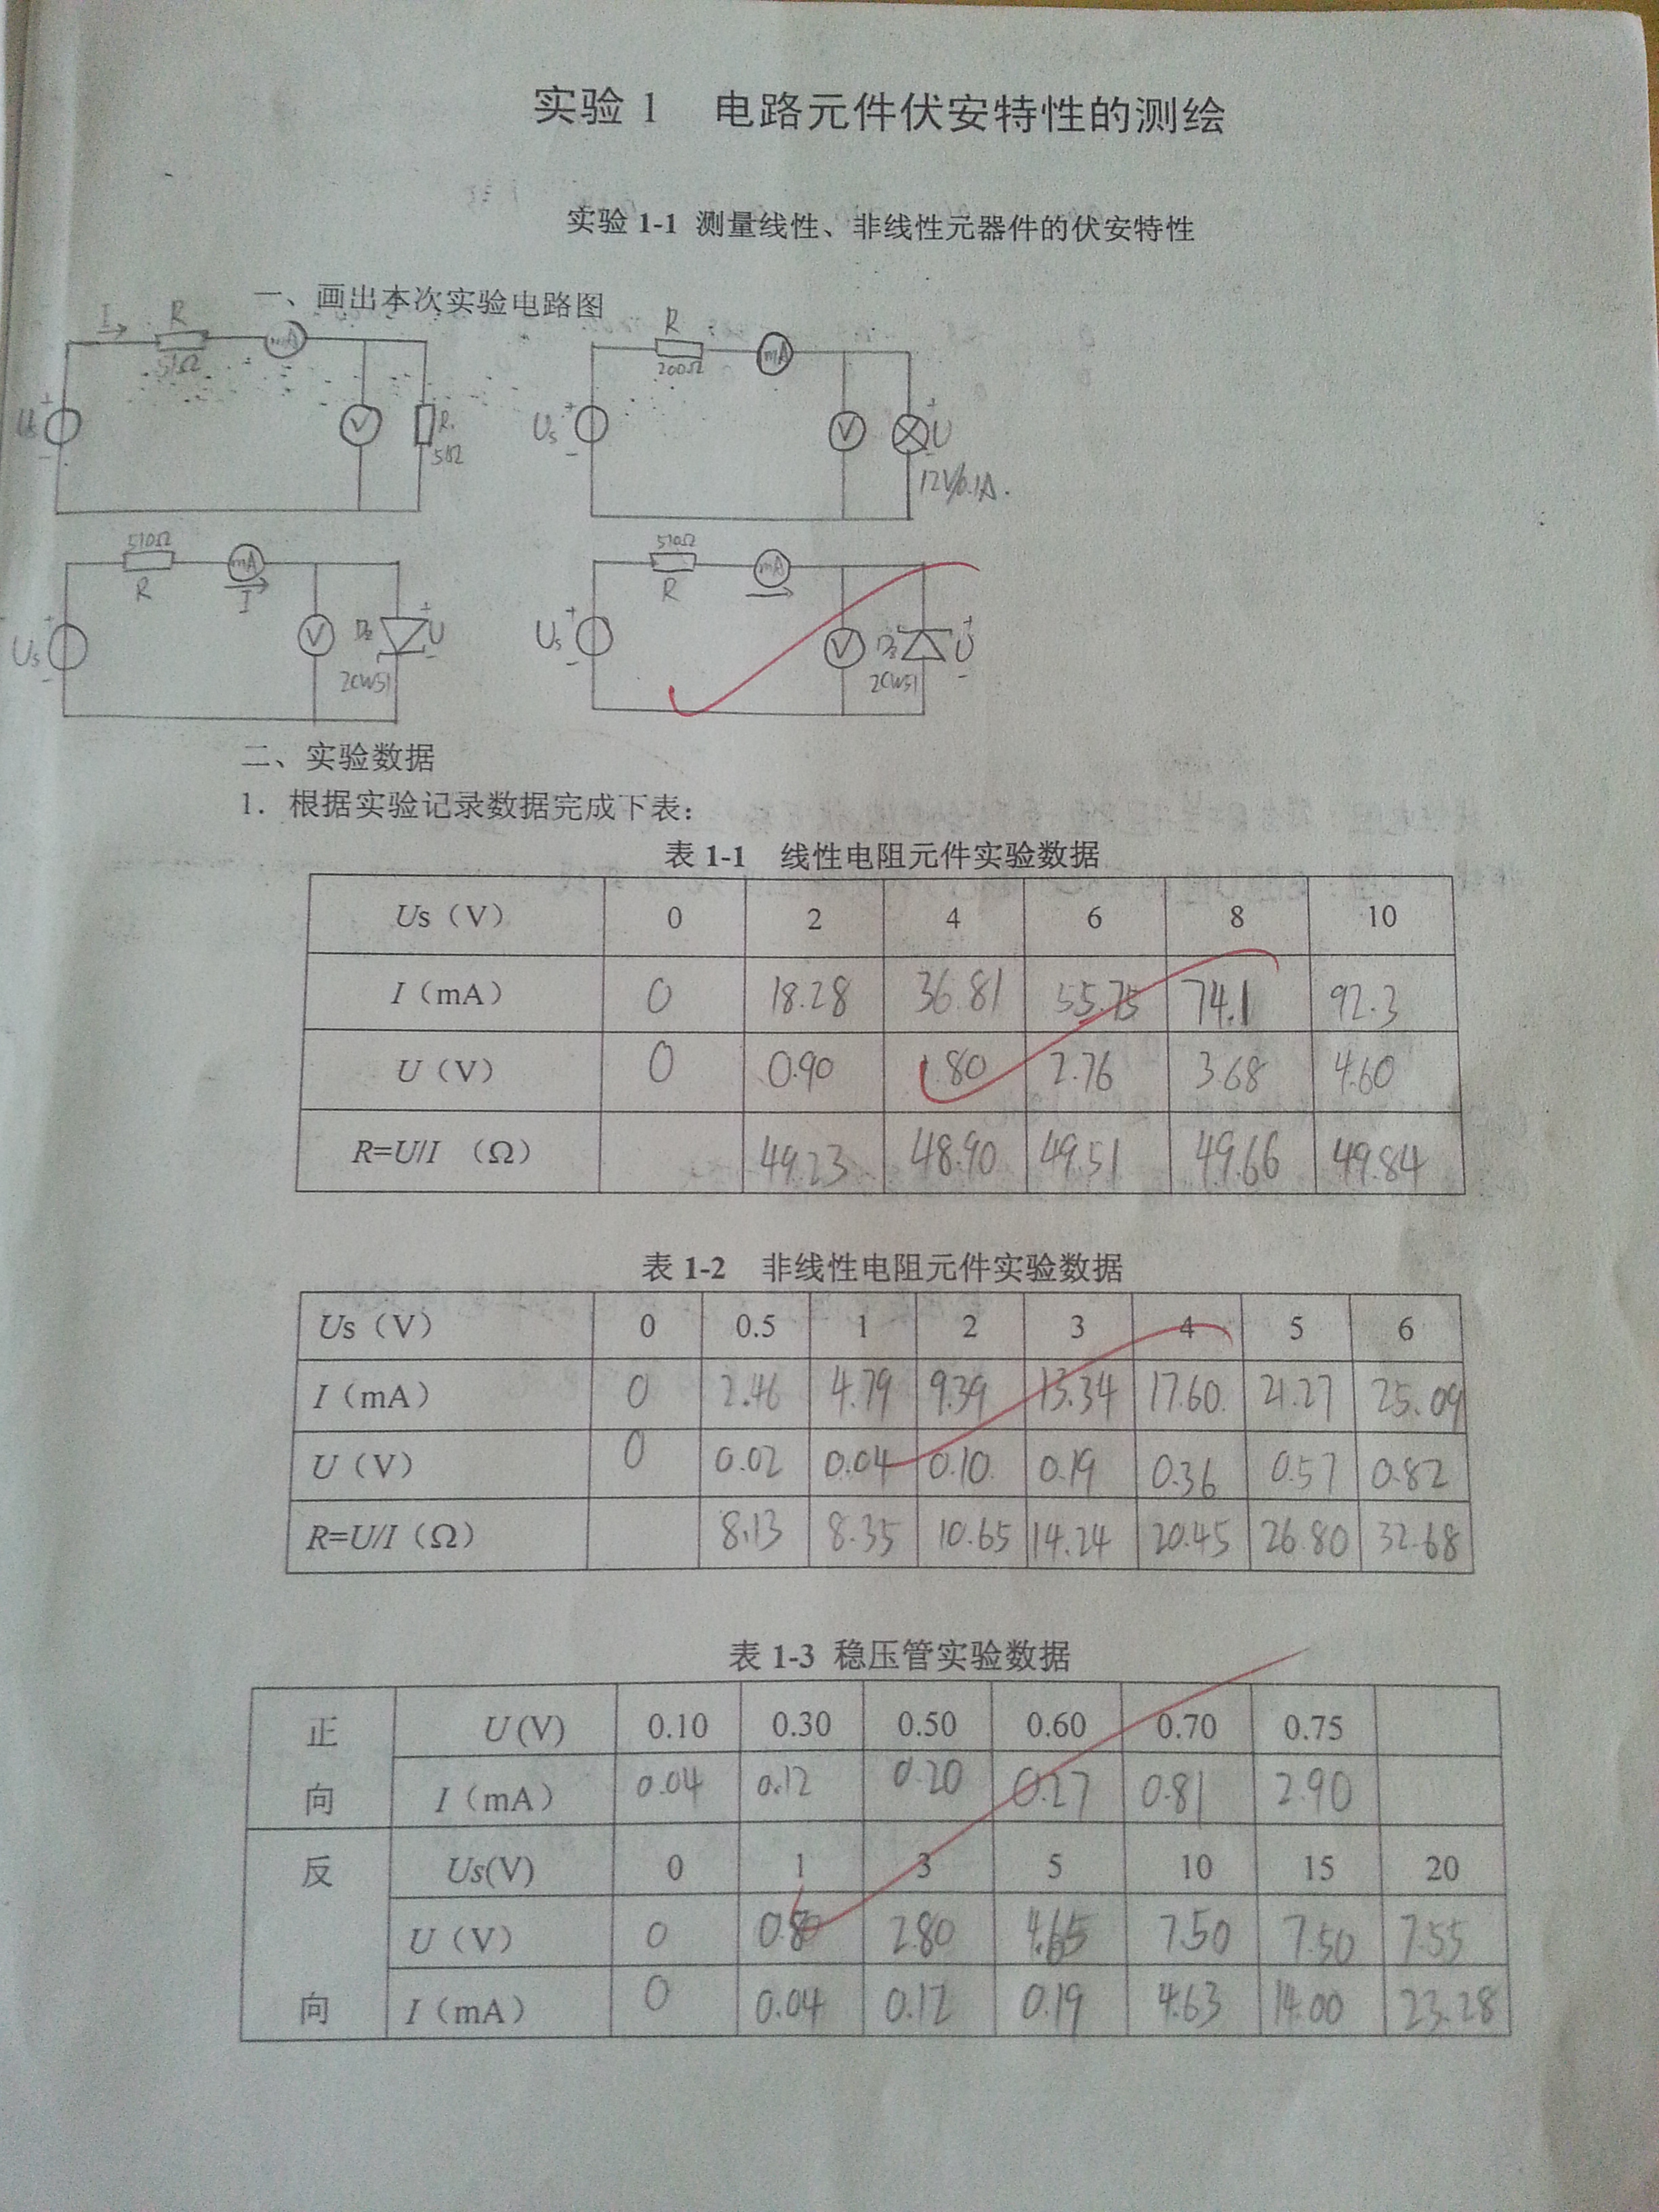 实验 1 电路元件伏安特性的测绘
实验 1-1 测量线性、非线性元器件的伏安特性
一、画出本次实验电路图
I R mA R
51Ω 200Ω mA
Us + - V R₁ 51Ω Us + - V + U -
12V/0.1A.
510Ω mA 510Ω mA
R I R
Us + - V Dz + U - Us + - V Dz + U -
2CW51 2CW51
二、实验数据
1. 根据实验记录数据完成下表：
表 1-1 线性电阻元件实验数据
Us（V） 0 2 4 6 8 10
I（mA） 0 18.28 36.81 55.75 74.1 92.3
U（V） 0 0.90 1.80 2.76 3.68 4.60
R=U/I （Ω） 49.23 48.90 49.51 49.66 49.84
表 1-2 非线性电阻元件实验数据
Us（V） 0 0.5 1 2 3 4 5 6
I（mA） 0 2.46 4.79 9.39 13.34 17.60. 21.27 25.09
U（V） 0 0.02 0.04 0.10. 0.19 0.36 0.57 0.82
R=U/I（Ω） 8.13 8.35 10.65 14.24 20.45 26.80 32.68
表 1-3 稳压管实验数据
正向 U (V) 0.10 0.30 0.50 0.60 0.70 0.75
I（mA） 0.04 0.12 0.20 0.27 0.81 2.90
反向 Us(V) 0 1 3 5 10 15 20
U（V） 0 0.80 2.80 4.65 7.50 7.50 7.55
I（mA） 0 0.04 0.12 0.19 4.63 14.00 23.28